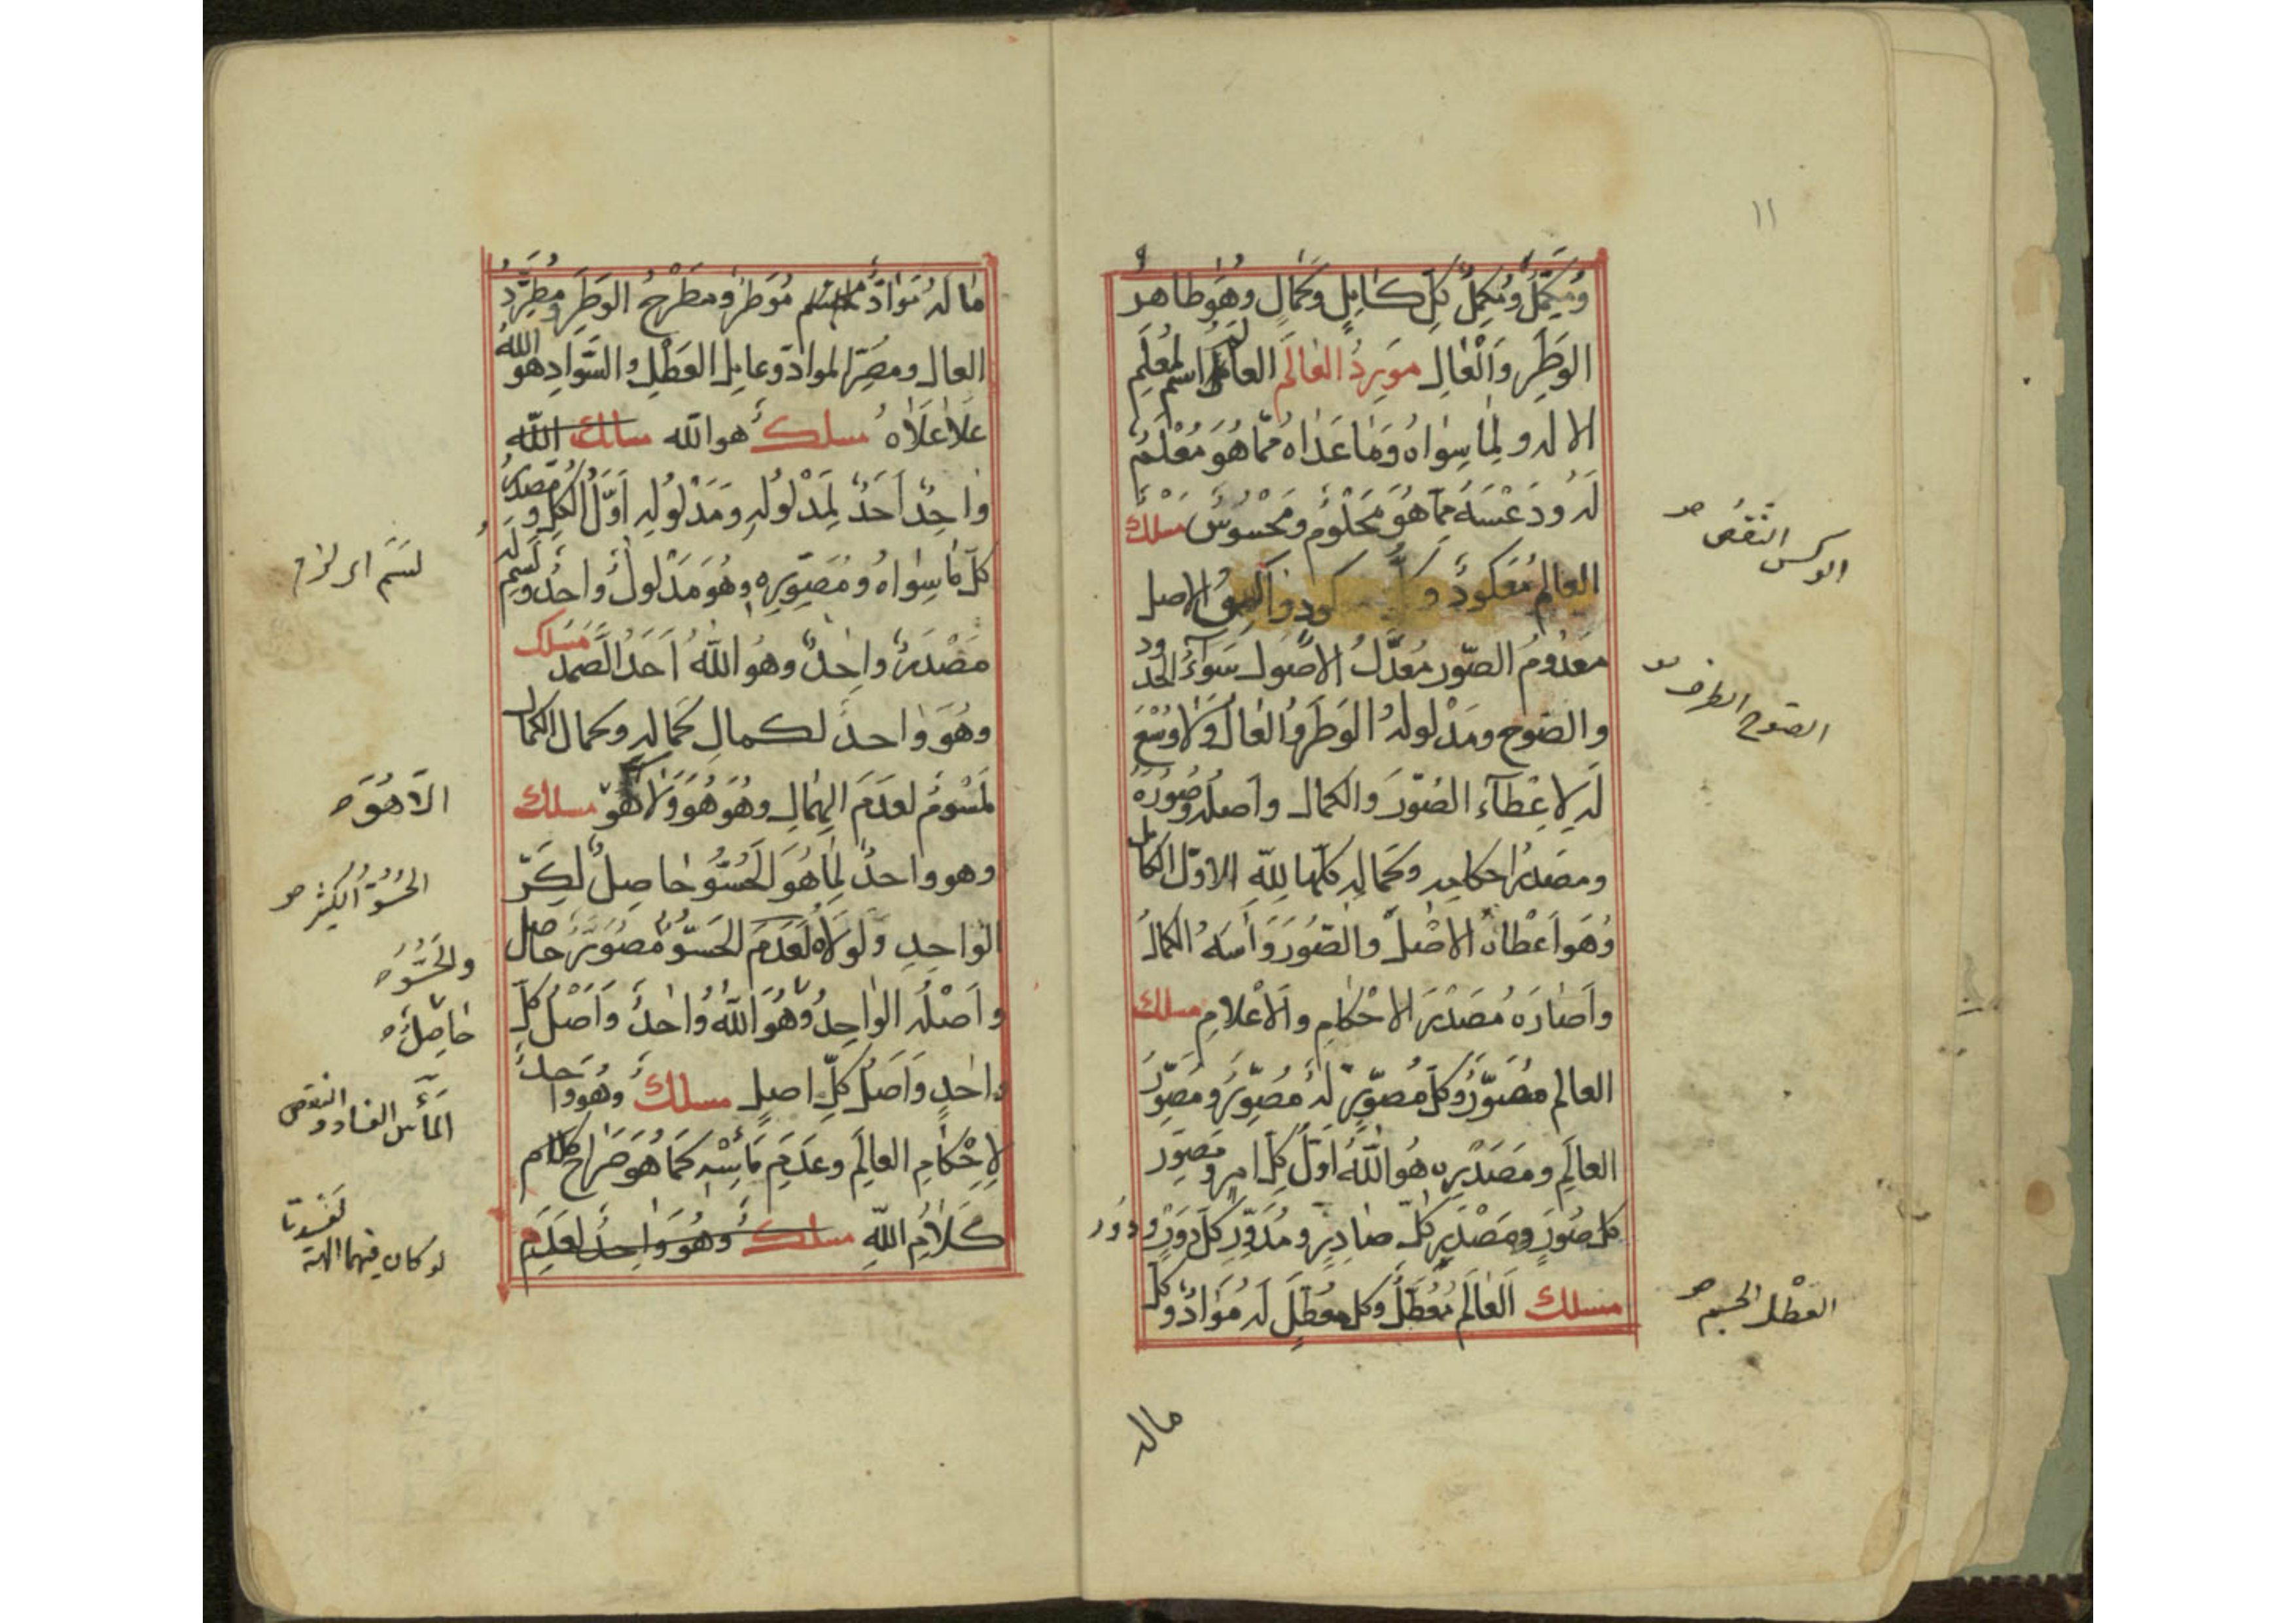 ١١
ومكمل ومكمل كل كامل وكمال وهو طاهر
الوطر والعال مورد العالم العالم اسم لمعلم
الا له ولما سواه وما عداه مما هو معلم
له ودعسه مما هو محلوم ومحسوس مسلك
العالم معكود و كود والاصل
معدوم الصور معدل الاصول سواء الحدود
والصوح ومدلوله الوطر والعال ولا وسع
له لاعطاء الصور والكمال واصله وصوره
ومصدر احكامه وكماله كلها لله الاول الكامل
وهو اعطاه الاصل والصور واسه الكمال
واصاره مصدر الاحكام والاعلام مسلك
العالم مصور وكل مصور له مصور ومصور
العالم ومصدره هو الله اول كل امر ومصور
كل صور ومصدر كل صادر ومدور كل دور ودور
مسلك العالم معطل وكل معطل له مواد وكل
ماله
الوكس النقص
الصوح الطرف
العطل الجسم
ما له مواد موطر ومطرح الوطر ومطرد
العال ومصر المواد وعامل العطل والسواد هو الله
علا علاه مسلك هو الله مسلك الله
واحد احد لمدلوله ومدلوله اول الكل ومصدر
كل ما سواه ومصوره وهو مدلول واحد ولسم له
مصدر واحد وهو الله احد الصمد مسلك
وهو واحد لكمال كماله وكمال الكمال
لسوم لعدم الهمال وهو هو ولا هو مسلك
وهو واحد لما هو لحسو حاصل لكر
الواحد ولولاه لعدم الحسو مصور حاصل
واصله الواحد وهو الله واحد واصل كل
واحد واصل كل اصل مسلك وهو واحد
لاحكام العالم وعدم ماسه كما هو صراح كلام
كلام الله مسلك وهو واحد لعدم
لسم اى لزم
الا هو
الحسو الكثير
والحسو
حاصله
الماس الفساد والنقص
لو كان فيهما الهة لفسدتا